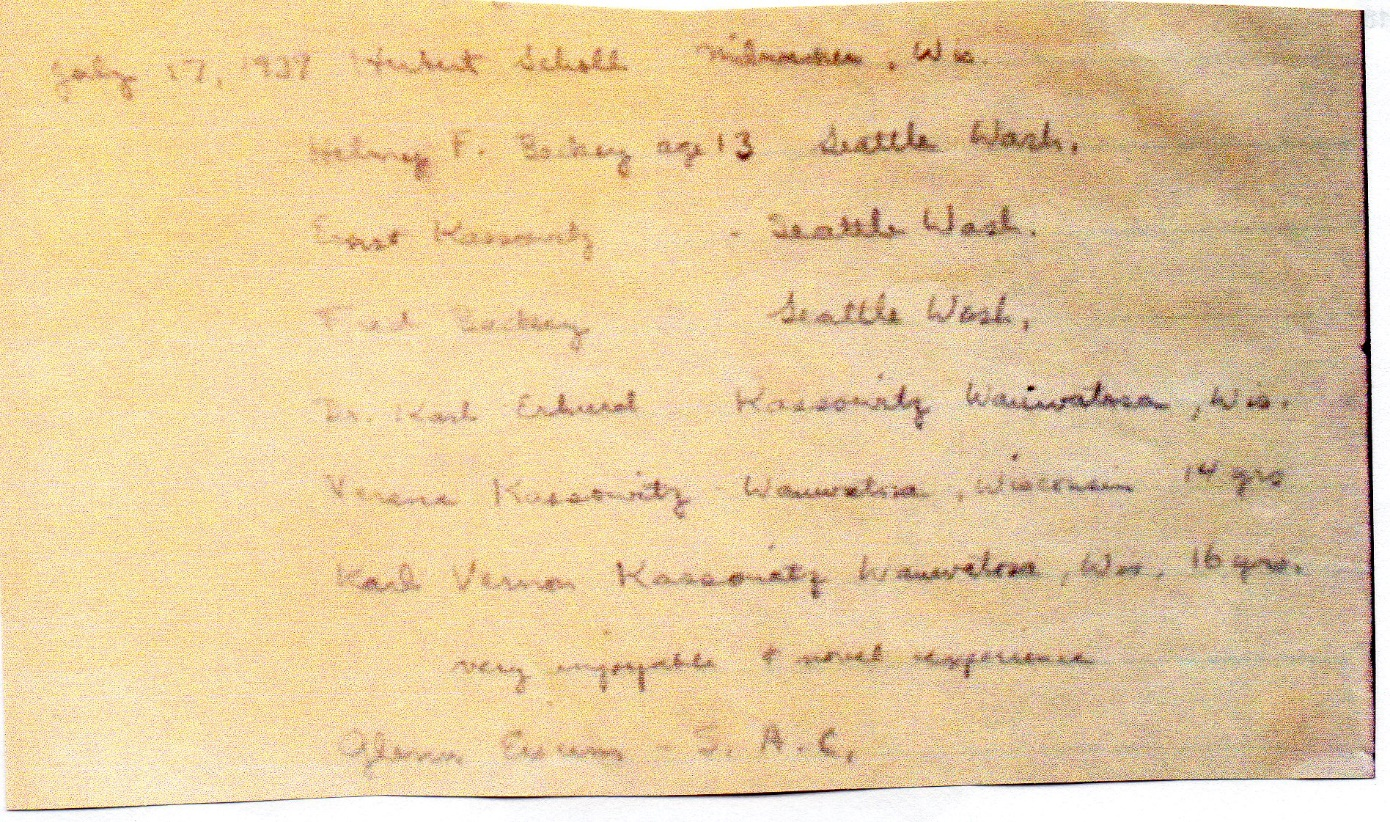 July 17, 1937 Herbert Scholl Milwaukee, Wis.
Helmy F. Beckey age 13 Seattle Wash.
Ernst Kassowitz - Seattle Wash.
Fred Beckey Seattle Wash,
Dr. Karl Erhard Kassowitz Wauwatosa, Wis.
Verena Kassowitz - Wauwatosa, Wisconsin 14 yrs
Karl Vernon Kassowitz Wauwatosa, Wis. 16 yrs.
very enjoyable + novel experience
Glenn - S. A. C.